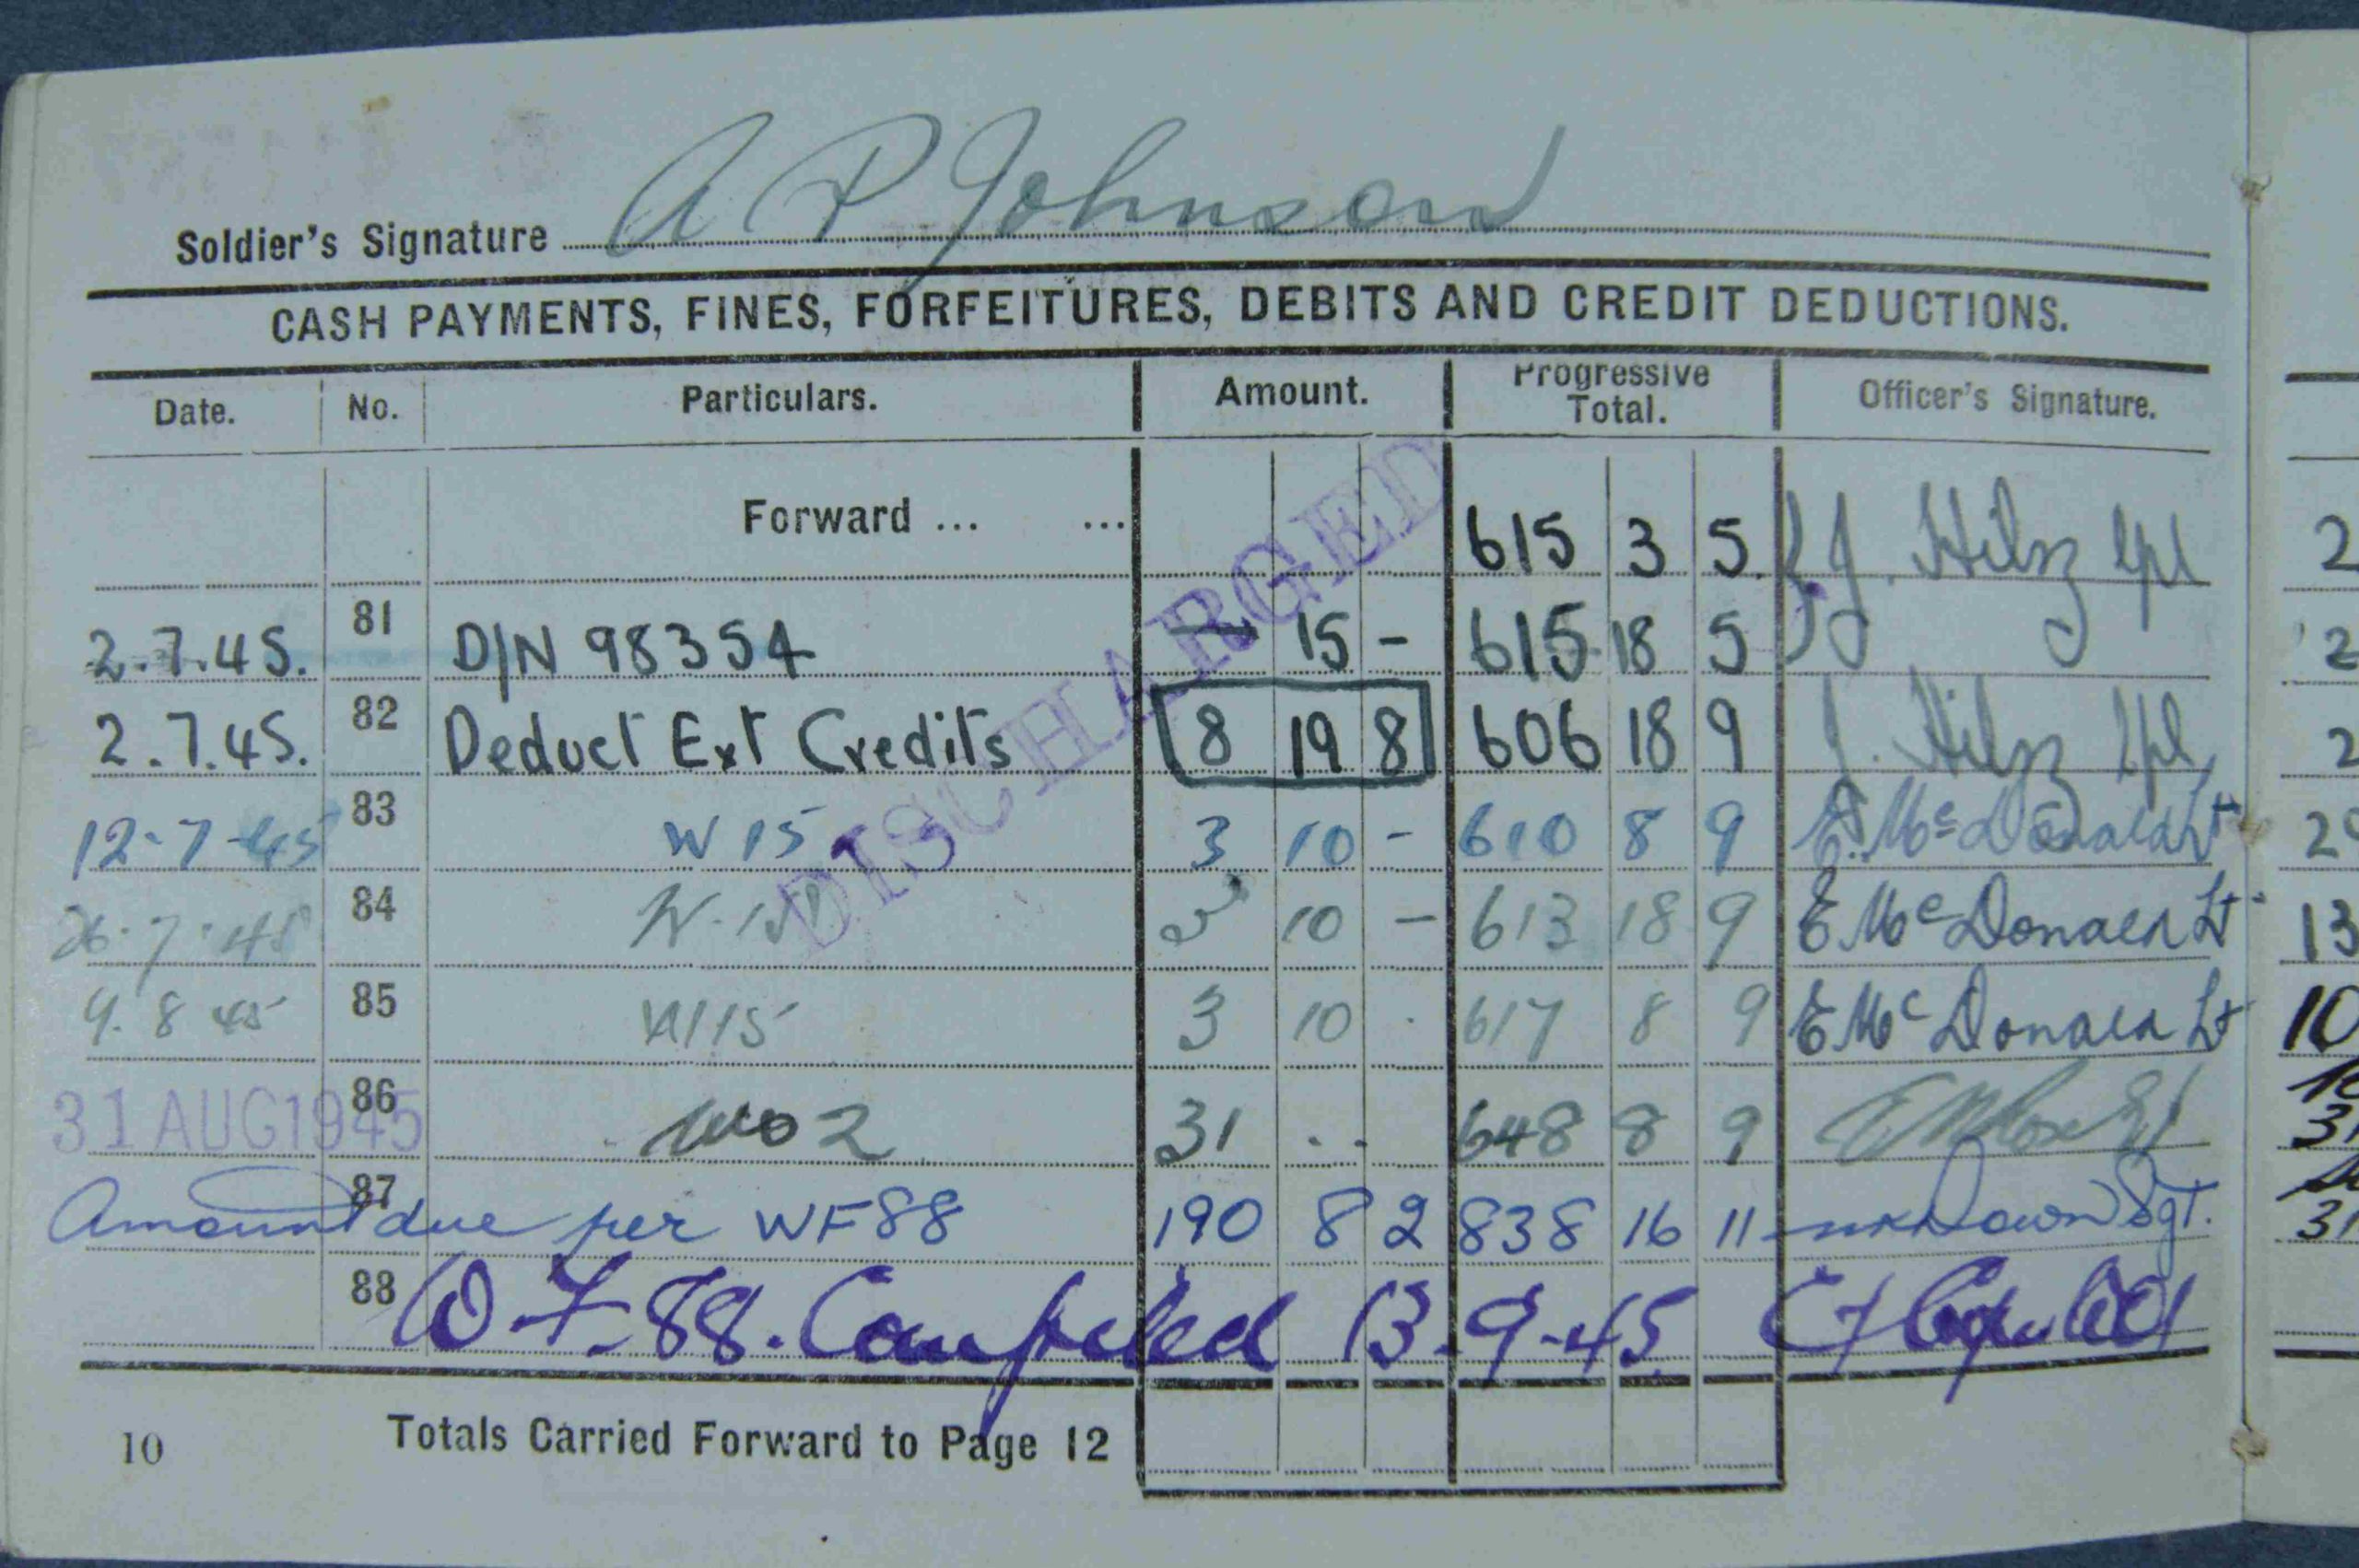 Soldier's Signature A P Johnson
CASH PAYMENTS, FINES, FORFEITURES, DEBITS AND CREDIT DEDUCTIONS.
Date. No. Particulars. Amount. Progressive Total. Officer's Signature.
Forward ... ... 615 3 5 J. Hilzz Cpl
2.7.45. 81 D/N 98354 — 15 - 615 18 5
2.7.45. 82 Deduct Ext Credits 8 19 8 606 18 9 J. Hilzz Cpl
12-7-45 83 W 15 3 10 - 610 8 9 E. McDonald Lt
26.7.45 84 W.15 3 10 - 613 18 9 E McDonald Lt
9.8 45 85 W15 3 10 . 617 8 9 E McDonald Lt
31 AUG 1945 86 31 .. 648 8 9
87 Amount due per WF88 190 8 2 838 16 11 Sgt.
88 W.F.88. Completed 13-9-45
DISCHARGED
10 Totals Carried Forward to Page 12
2
2
2
13
10
31
31